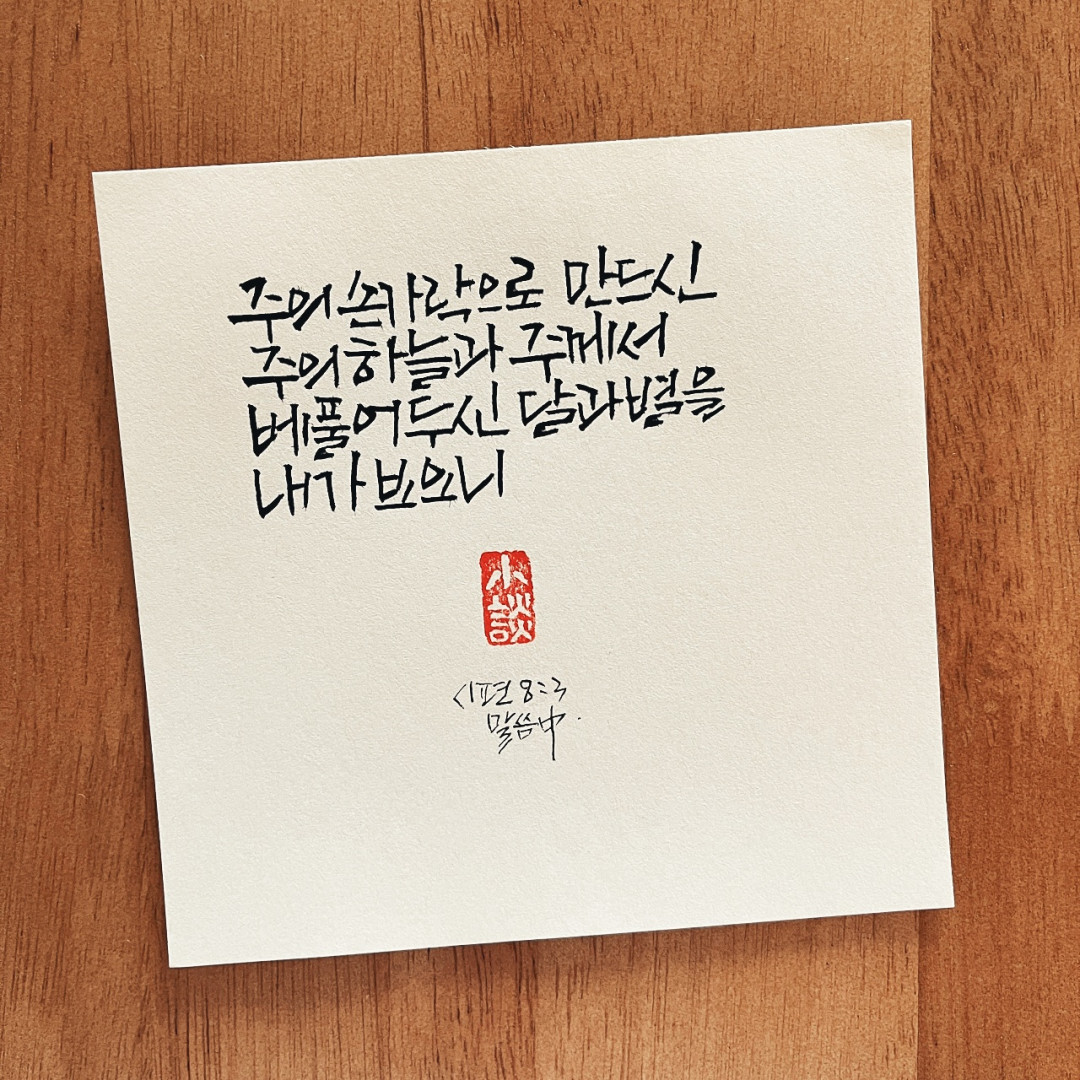 주의 손가락으로 만드신
주의 하늘과 주께서
베풀어 두신 달과 별을
내가 보오니
小談
시편 8:3
말씀中.